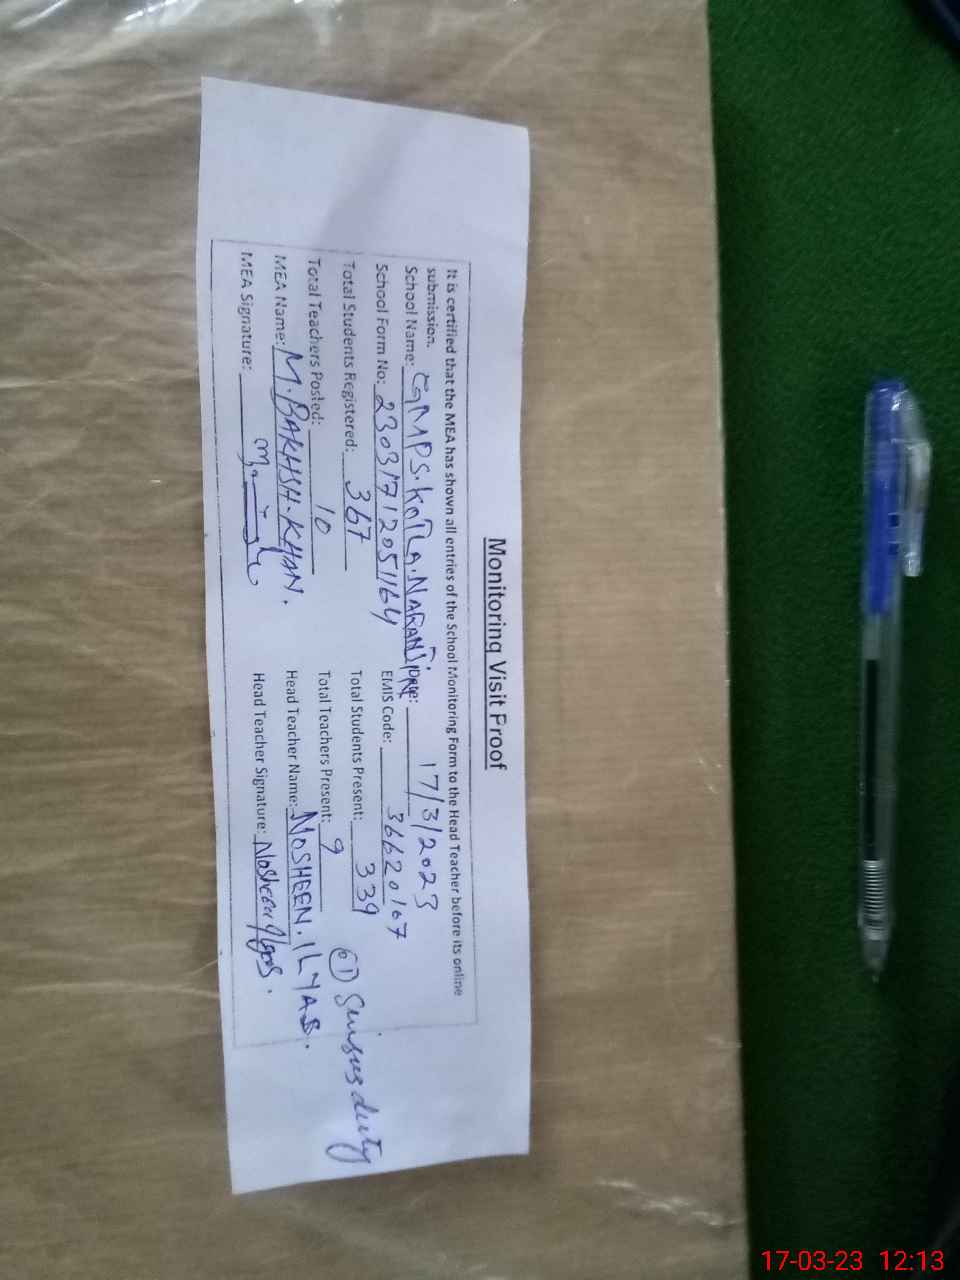 Monitoring Visit Proof
It is certified that the MEA has shown all entries of the School Monitoring Form to the Head Teacher before its online
submission.
School Name: GMPS.KOTLA.NARANJ Date: 17/3/2023
School Form No: 23031712051164 EMIS Code: 36620167
Total Students Registered: 367 Total Students Present: 339
Total Teachers Posted: 10 Total Teachers Present: 9 Sensus duty
MEA Name: M.BAKHSH.KHAN. Head Teacher Name: NOSHEEN.ILYAS.
MEA Signature: Head Teacher Signature: Nosheen Ilyas.
17-03-23 12:13